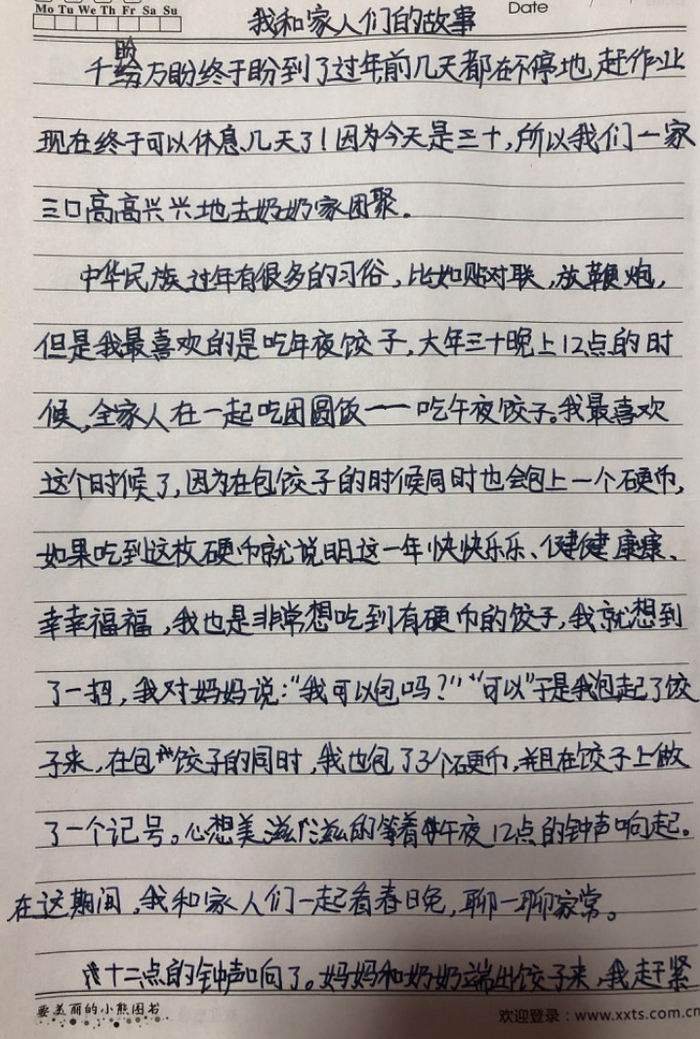 Mo Tu We Th Fr Sa Su
Date
我和家人们的故事
盼
千盼万盼终于盼到了过年前几天都在不停地,赶作业
现在终于可以休息几天了!因为今天是三十,所以我们一家
三口高高兴兴地去奶奶家团聚。
中华民族过年有很多的习俗,比如贴对联,放鞭炮,
但是我最喜欢的是吃年夜饺子,大年三十晚上12点的时
候,全家人在一起吃团圆饭一一吃午夜饺子。我最喜欢
这个时候了,因为在包饺子的时候同时也会包上一个硬币,
如果吃到这枚硬币就说明这一年快快乐乐、健健康康、
幸幸福福,我也是非常想吃到有硬币的饺子,我就想到
了一招,我对妈妈说:“我可以包吗?”“可以”于是我包起了饺
子来,在包饺子的同时,我也包了3个硬币,并且在饺子上做
了一个记号。心想美滋滋的等着午夜12点的钟声响起。
在这期间,我和家人们一起看春日免,聊一聊家常。
十二点的钟声响了。妈妈和奶奶端出饺子来,我赶紧
要美丽的小熊图书
欢迎登录:www.xxts.com.cn